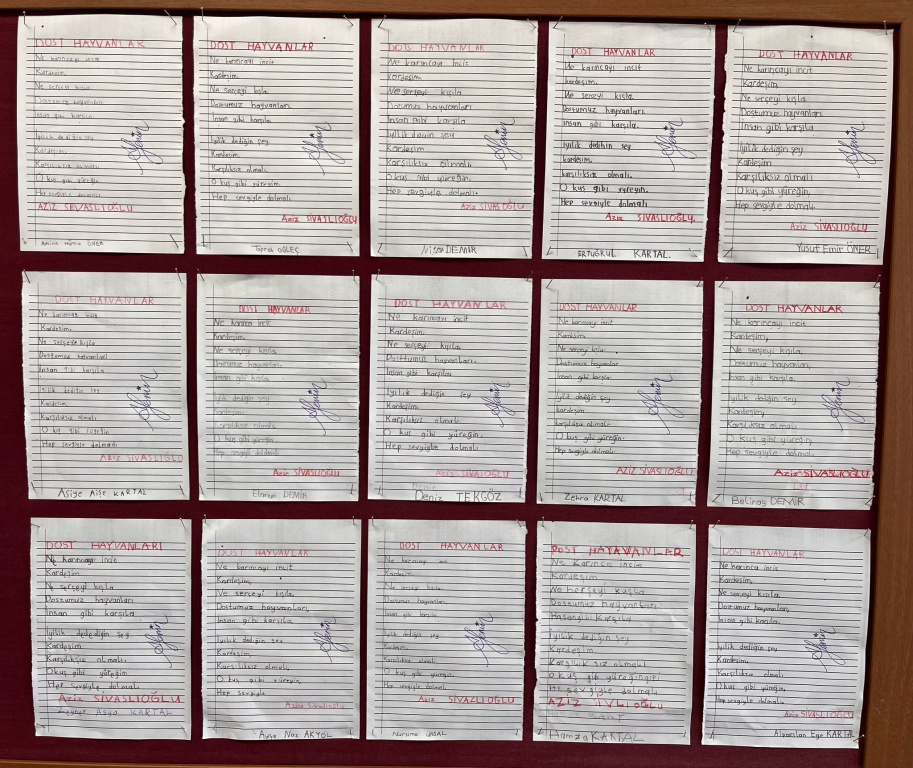 DOST HAYVANLAR
Ne karıncayı incit
Kardeşim.
Ne serçeyi
Dostumuz hayvanları
İnsan gibi karşıla.
İyilik dediğin şey
Kardeşim.
Karşılıksız olmalı
O kuş gibi yüreğin
Hep sevgiyle dolmalı
AZİZ SİVASLIOĞLU
ÖNER
DOST HAYVANLAR
Ne karıncayı incit
Kardeşim.
Ne serçeyi kışla.
Dostumuz hayvanları.
İnsan gibi karşıla.
İyilik dediğin şey.
Kardeşim.
Karşılıksız olmalı.
O kuş gibi yüreğin.
Hep sevgiyle dolmalı.
Aziz SİVASLIOĞLU
Toprak
DOTS HAYVANLAR
Ne karıncayı incis
Kardeşim.
Ne serçeyi kışla
Dostumu hayvanları
İnsan gibi karşıla
İyilik demin şey
Kardeşim
Karşılıksız olmalı.
O kuş gibi yüreğin.
Hep sevgiyle dolmalı.
Aziz SİVASOĞLU
Nisa DEMİR
DOST HAYVANLAR
Ne karıncayı incit
kardeşim.
Ne serçeyi kışla.
Dostumuz hayvanları
İnsan gibi karşıla.
İyilik dedihin şey
kardeşim.
karşılıksız olmalı.
O kuş gibi yüreyin.
Hep sevgiyle dolmalı
Aziz SİVASLIOĞLU.
ERTUĞRUL KARTAL.
DOST HAYVANLAR
Ne karıncayı incit
Kardeşim
Ne serçeyi kışla
Dostumuz hayvanları
İnsan gibi karşıla
İyilik dediğin şey
Kardeşim
Karşılıksız olmalı
O kuş gibi yüreğin,
Hep sevgiyle dolmalı.
Aziz SİVASLIOĞLU
Yusuf Emir ÖNER
DOST HAYVANLAR
Ne karıncayı incit
Kardeşim.
Ne serçeye kışla
Dostumuz hayvanları
İnsan gibi karşıla
İyilik dediğin şey
Kardeşim
Karşılıksız olmalı
O kuş gibi yüreğin
Hep sevgiyle dolmalı
AZİZ SİVASLIOĞLU
Asiye Ayşe KARTAL
DOST HAYVANLAR
Ne karınca incit
Kardeşim.
Ne serçeyi kışla.
Dostumuz hayvanları
İnsan gibi karşıla.
İyilik dediğin şey
Kardeşim
Karşılıksız olmalı.
O kuş gibi yüreğin.
Hep sevgiyle dolmalı
Aziz SİVASLIOĞLU
DEMİR
DOST HAYVANLAR
Ne karıncayı incit
Kardeşim.
Ne serçeyi kışla.
Dosttumuz hayvanları.
İnsan gibi karşıla
İyilik dediğin şey
Kardeşim.
Karşılıksız olmalı.
O kuş gibi yüreğin.
Hep sevgiyle dolmalı
Aziz SİVASLIOĞLU
Deniz TEKGÖZ
DOST HAYVANLAR
Ne karıncayı incit
Kardeşim
Ne serçeyi kışla.
Dostumuz hayvanlar
İnsan gibi karşıla
İyilik dediğin şey
kardeşim
karşılıksız olmalı
O kuş gibi yüreğin.
Hep sevgiyle dolmalı
AZİZ SİVASLIOĞLU
Zehra KARTAL
DOST HAYVANLAR
Ne karıncayı incit
Kardeşim,
Ne serçeyi kışla.
Dostumuz hayvanları,
İnsan gibi karşıla.
İyilik dediğin şey
Kardeşim,
Karşılıksız olmalı
O kuş gibi yüreğin,
Hep sevgiyle dolmalı.
Aziz SİVASLIOĞLU
Belinay DEMİR
DOST HAYVANLARI
Ne karıncayı incit
Kardeşim
Ne serçeyi kışla
Dostumuz hayvanları
İnsan gibi karşıla
İyilik dediğin şey
Kardeşim
Karşılıksız olmalı
O kuş gibi yüreğim
Hep sevgiyle dolmalı
Aziz SİVASLIOĞLU
Zeynep Asya KARTAL
DOST HAYVANLAR
Ve karıncayı incit
Kardeşim,
Ve serçeyi kışla.
Dostumuz hayvanları,
İnsan gibi karşıla.
İyilik dediğin şey
Kardeşim,
Karşılıksız olmalı,
O kuş gibi yüreyin,
Hep sevgiyle
Aziz Sivaslıoğlu
Ayşe Naz AKYOL
DOST HAYVANLAR
Ne karıncayı
Kardeşim
Ne serçeyi kışla
Dostumuz hayvanları
İnsan gibi karşıla
İyilik dediğin şey
Kardeşim.
Karşılıksız olmalı
O kuş gibi yüreğin.
Hep sevgiyle dolmalı
Aziz SİVAZLIOĞLU
DOST HAYAVANLAR
Ne Karınca incin
Kardeşim
Ne herşeyi kuşla
Dostumuz hayvanları
Karşıla
İyilik dediğin şey
Kardeşim
Karşılık sız olmalı
O kuş gibi
He sevgiyle dolmalı
AZİZ SİVLIOĞLU
Hamza KARTAL
DOST HAYVANLAR
Ne karınca incit
Kardeşim,
Ne serçeyi kışla.
Dostumuz hayvanları,
İnsan gibi karşıla.
İyilik dediğin şey
Kardeşim,
Karşılıksız olmalı,
O kuş gibi yüreğin,
Hep sevgiyle dolmalı
Aziz SİVASLIOĞLU
Alparslan Ege KARTAL